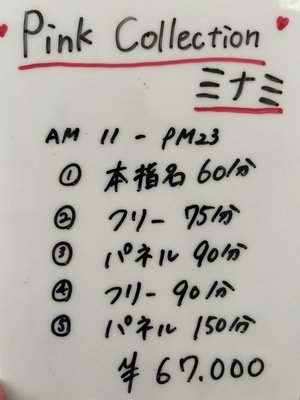 Pink Collection
ミナミ
AM 11 - PM23
① 本指名 60分
② フリー 75分
③ パネル 90分
④ フリー 90分
⑤ パネル 150分
¥67.000